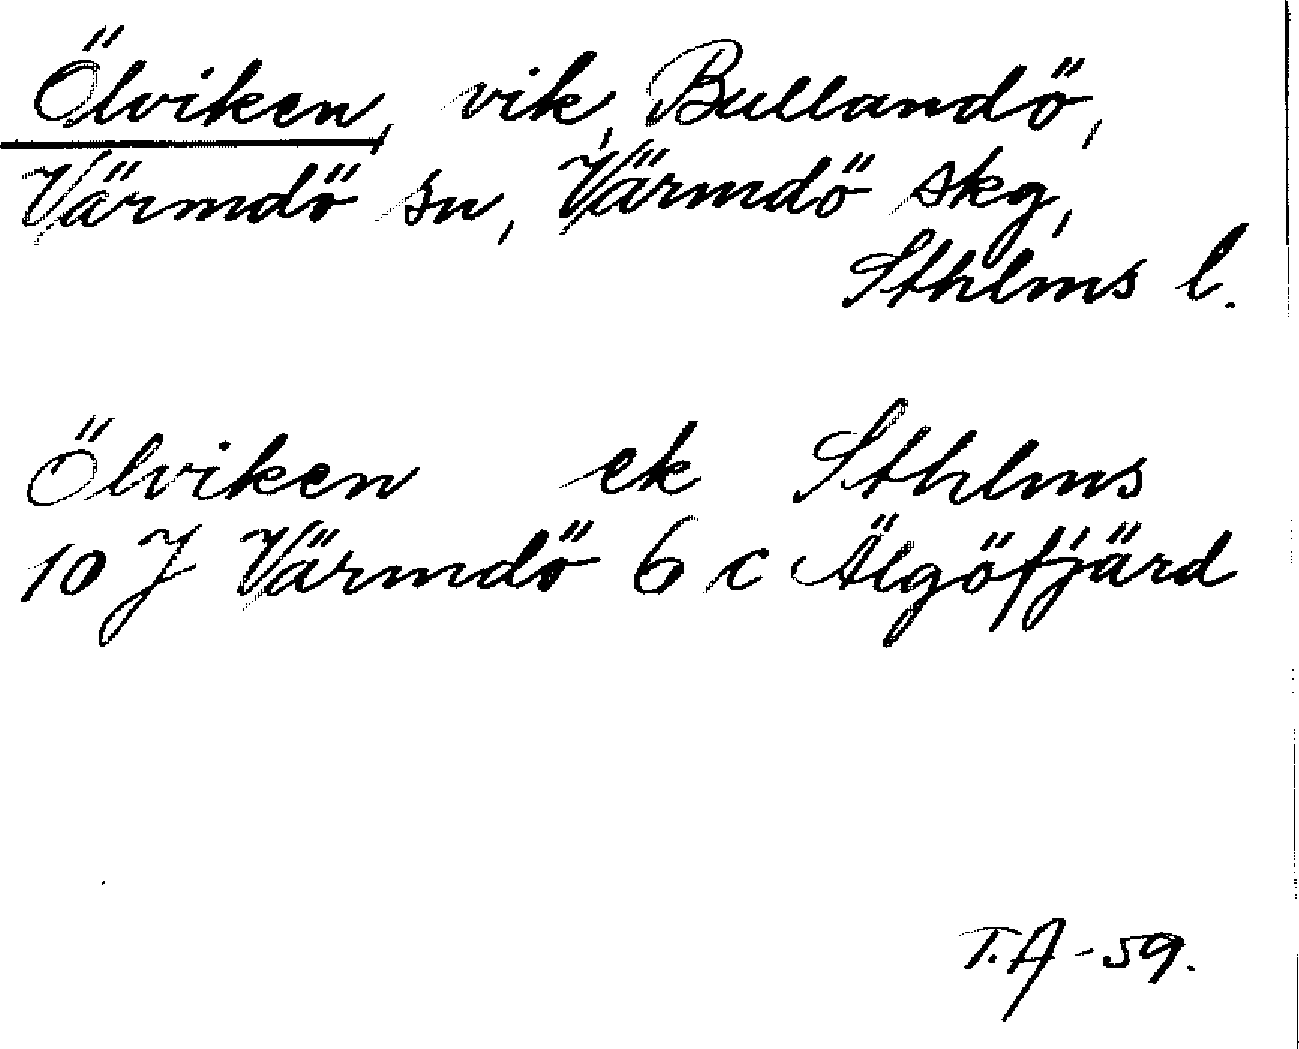 Ölviken, vik, Bullandö,
Värmdö sn, Värmdö skg,
Sthlms l.
Ölviken ek Sthlms
10 J Värmdö 6 c Älgöfjärd
T.A - 59.